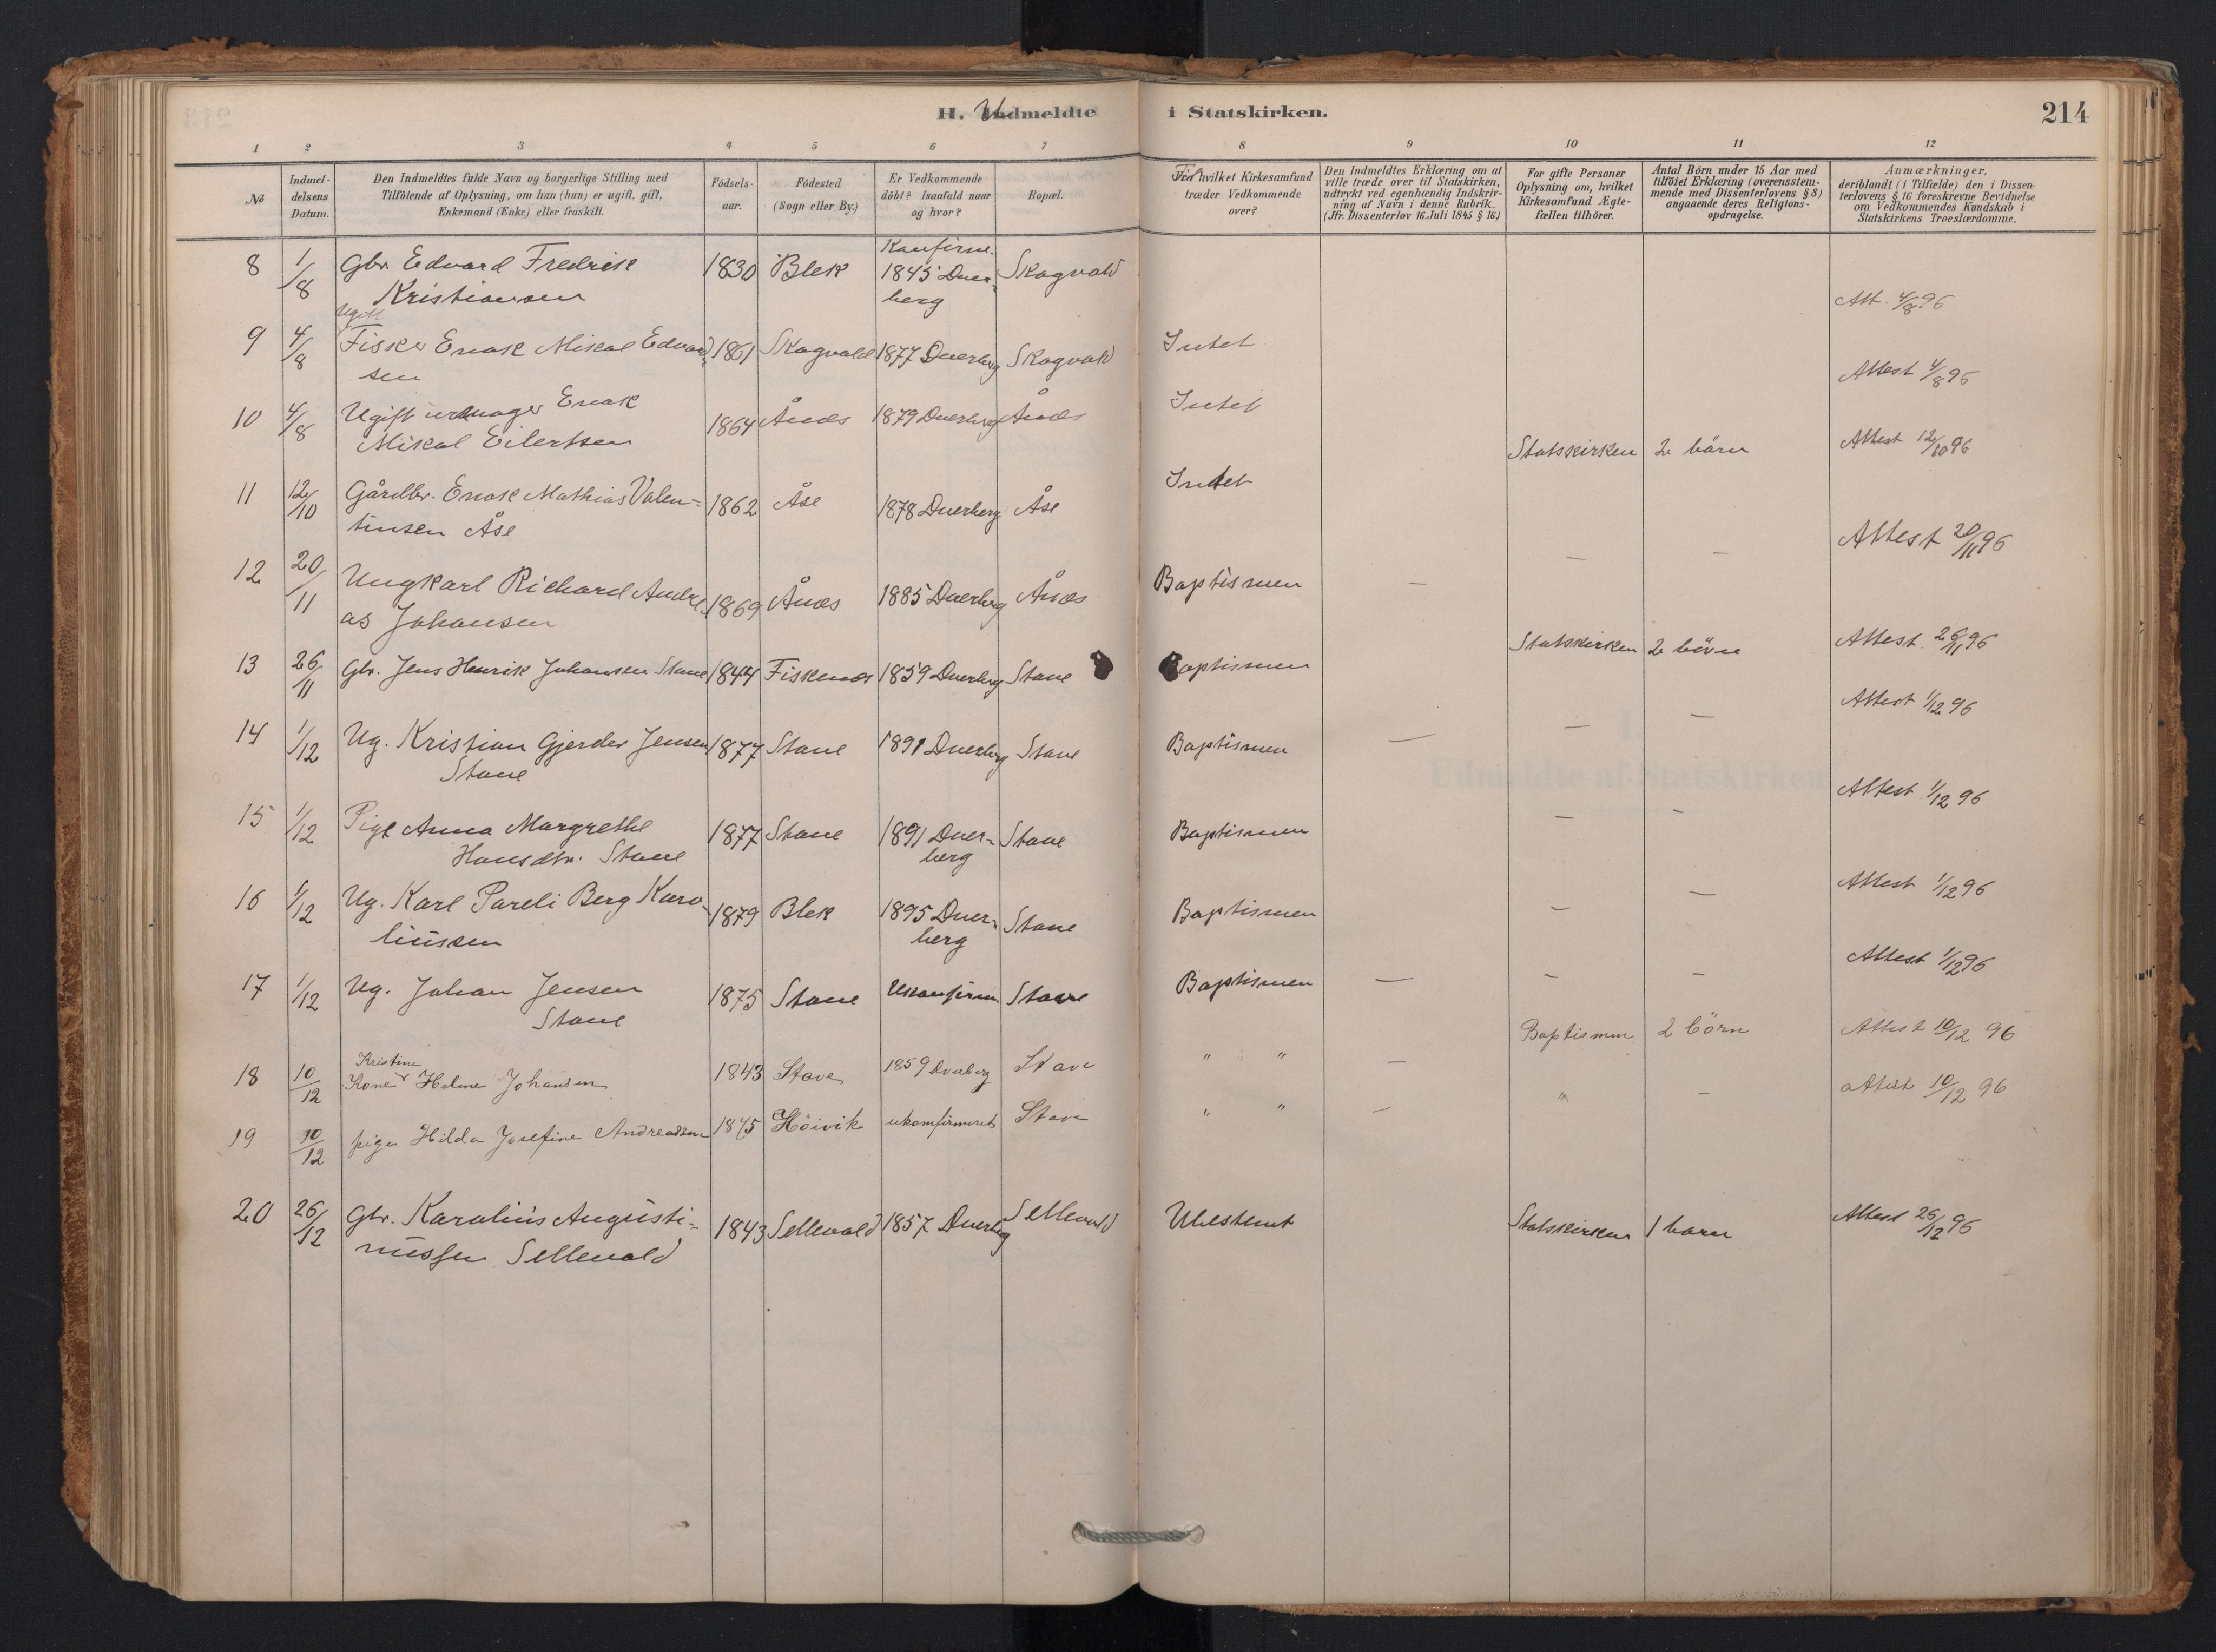 H. Udmeldte i Statskirken.
214
1 2 3 4 5 6 7 8 9 10 11 12
№
Indmel-
delsens
Datum.
Den Indmeldtes fulde Navn og borgerlige Stilling med
Tilföiende af Oplysning, om han (hun) er ugift, gift,
Enkemand (Enke) eller fraskilt.
Födsels-
aar.
Födested
(Sogn eller By.)
Er Vedkommende
döbt? Isaafald naar
og hvor?
Bopæl.
Til hvilket Kirkesamfund
træder Vedkommende
over?
Den Indmeldtes Erklæring om at
ville træde over til Statskirken,
udtrykt ved egenhændig Indskriv-
ning af Navn i denne Rubrik.
(Jfr. Dissenterlov 16. Juli 1845 § 16.)
For gifte Personer
Oplysning om, hvilket
Kirkesamfund Ægte-
fællen tilhörer.
Antal Börn under 15 Aar med
tilföiet Erklæring (overensstem-
mende med Dissenterlovens § 8)
angaaende deres Religions-
opdragelse.
Anmærkninger,
deriblandt (i Tilfælde) den i Dissen-
terlovens § 16 foreskrevne Bevidnelse
om Vedkommendes Kundskab i
Statskirkens Troeslærdomme.
8 1/8 Gbr. Edvard Fredrik 1830 Blek Konfirm. 1845 Dver- Skogvold
Kristiansen berg Att. 4/8 96
Ugift
9 4/8 Fisker Enok Mikal Edvard- 1861 Skogvold 1877 Dverberg Skogvold Intet
sen Attest 4/8 96
10 4/8 Ugift Enok 1864 Ånes 1879 Dverberg Ånes Intet
Mikal Eilertsen Statskirken 2 börn Attest 12/10 96
11 12/10 Gårdbr. Enok Mathias Valen- 1862 Åse 1878 Dverberg Åse Intet
tinsen Åse Attest 20/11 96
12 20/11 Ungkarl Richard Andre- 1869 Ånes 1885 Dverberg Ånes Baptismen — — —
as Johansen Statskirken 2 börn Attest. 26/11 96
13 26/11 Gbr. Jens Henrik Johansen Stave 1844 Fiskenes 1859 Dverberg Stave Baptismen
Attest 1/12 96
14 1/12 Ug. Kristian Gjerder Jensen 1877 Stave 1891 Dverberg Stave Baptismen — — —
Stave Attest 1/12 96
15 1/12 Pige Anna Margrethe 1877 Stave 1891 Dver- Stave Baptismen — —
Hansdtr. Stave berg Attest 1/12 96
16 1/12 Ug. Karl Pareli Berg Karo- 1879 Blek 1895 Dver- Stave Baptismen — —
liussen berg Attest 1/12 96
17 1/12 Ug. Johan Jensen 1875 Stave Ukonfirm. Stave Baptismen — — —
Stave Baptismen 2 börn Attest 10/12 96
Kristine
18 10/12 Kone Helene Johansen 1843 Stave 1859 Dverberg Stave " " —
" — Attest 10/12 96
19 10/12 pige Hilda Josefine Andreassen 1875 Höivik ukonfirmeret Stave " " —
20 26/12 Gbr. Karolius Augusti- 1843 Sellevold 1857 Dverberg Sellevold Ubestemt Statskirken 1 barn Attest 26/12 96
nussen Sellevold